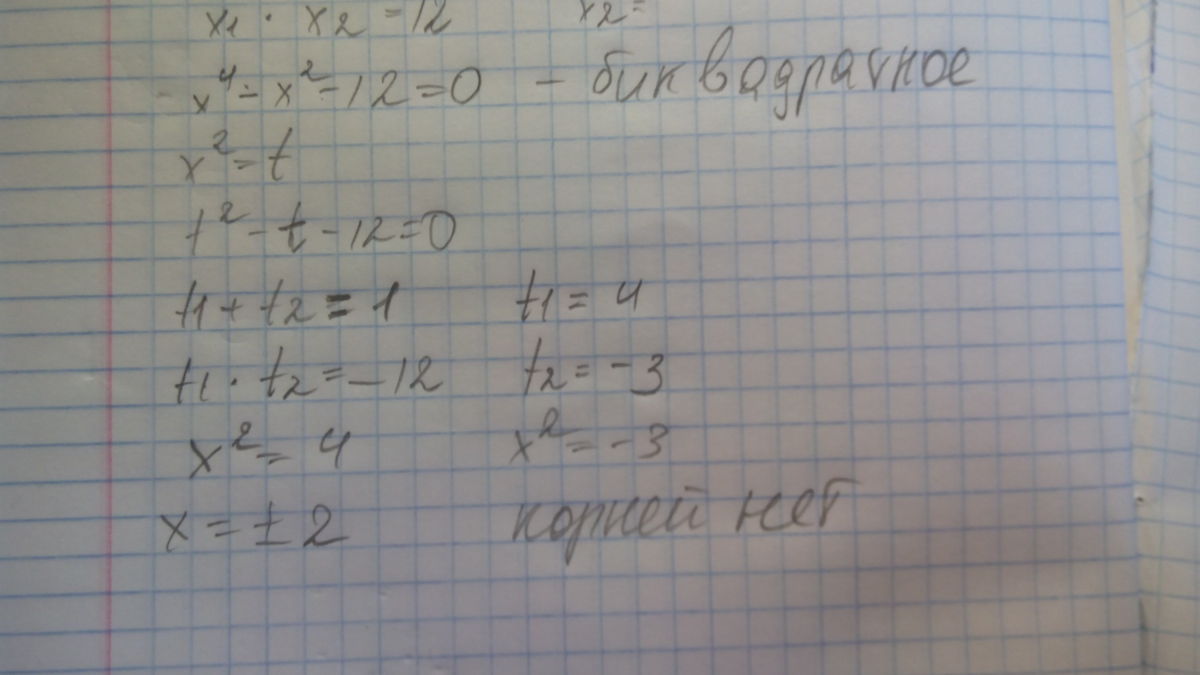 x1 · x2 = 12 x2 =
x⁴ - x² - 12 = 0 - биквадратное
x² = t
t² - t - 12 = 0
t1 + t2 = 1 t1 = 4
t1 · t2 = -12 t2 = -3
x² = 4 x² = -3
x = ± 2 корней нет